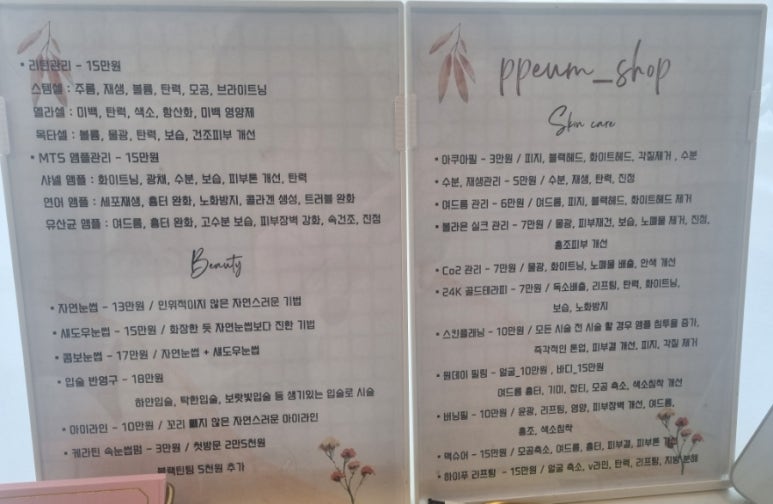 • 리턴관리 - 15만원
스템셀 : 주름, 재생, 볼륨, 탄력, 모공, 브라이트닝
멜라셀 : 미백, 탄력, 색소, 항산화, 미백 영양제
옥타셀 : 볼륨, 물광, 탄력, 보습, 건조피부 개선
• MTS 앰플관리 - 15만원
샤넬 앰플 : 화이트닝, 광채, 수분, 보습, 피부톤 개선, 탄력
연어 앰플 : 세포재생, 흉터 완화, 노화방지, 콜라겐 생성, 트러블 완화
유산균 앰플 : 여드름, 흉터 완화, 고수분 보습, 피부장벽 강화, 속건조, 진정
Beauty
• 자연눈썹 - 13만원 / 인위적이지 않은 자연스러운 기법
• 섀도우눈썹 - 15만원 / 화장한 듯 자연눈썹보다 진한 기법
• 콤보눈썹 - 17만원 / 자연눈썹 + 섀도우눈썹
• 입술 반영구 - 18만원
하얀입술, 탁한입술, 보랏빛입술 등 생기있는 입술로 시술
• 아이라인 - 10만원 / 꼬리 빼지 않은 자연스러운 아이라인
• 케라틴 속눈썹펌 - 3만원 / 첫방문 2만5천원
블랙틴팅 5천원 추가
ppeum_shop
Skin care
• 아쿠아필 - 3만원 / 피지, 블랙헤드, 화이트헤드, 각질제거 , 수분
• 수분, 재생관리 - 5만원 / 수분, 재생, 탄력, 진정
• 여드름 관리 - 6만원 / 여드름, 피지, 블랙헤드, 화이트헤드 제거
• 볼라욘 실크 관리 - 7만원 / 물광, 피부재건, 보습, 노폐물 제거, 진정,
홍조피부 개선
• Co2 관리 - 7만원 / 물광, 화이트닝, 노폐물 배출, 안색 개선
• 24K 골드테라피 - 7만원 / 독소배출, 리프팅, 탄력, 화이트닝,
보습, 노화방지
• 스킨플래닝 - 10만원 / 모든 시술 전 시술 할 경우 앰플 침투율 증가,
즉각적인 톤업, 피부결 개선, 피지, 각질 제거
• 원데이 필링 - 얼굴_10만원 , 바디_15만원
여드름 흉터, 기미, 잡티, 모공 축소, 색소침착 개선
• 버닝필 - 10만원 / 윤광, 리프팅, 영양, 피부장벽 개선, 여드름,
홍조, 색소침착
• 맥슈어 - 15만원 / 모공축소, 여드름, 흉터, 피부결, 피부톤 개선
• 하이푸 리프팅 - 15만원 / 얼굴 축소, v라인, 탄력, 리프팅, 지방 분해